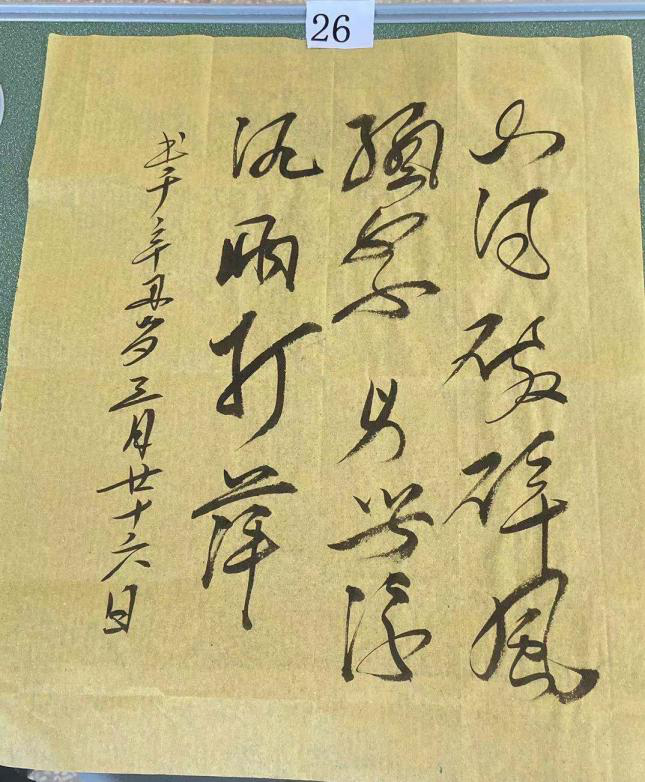 26
山河破碎风
飘絮身世浮
沉打萍
书于辛丑岁三月廿十六日